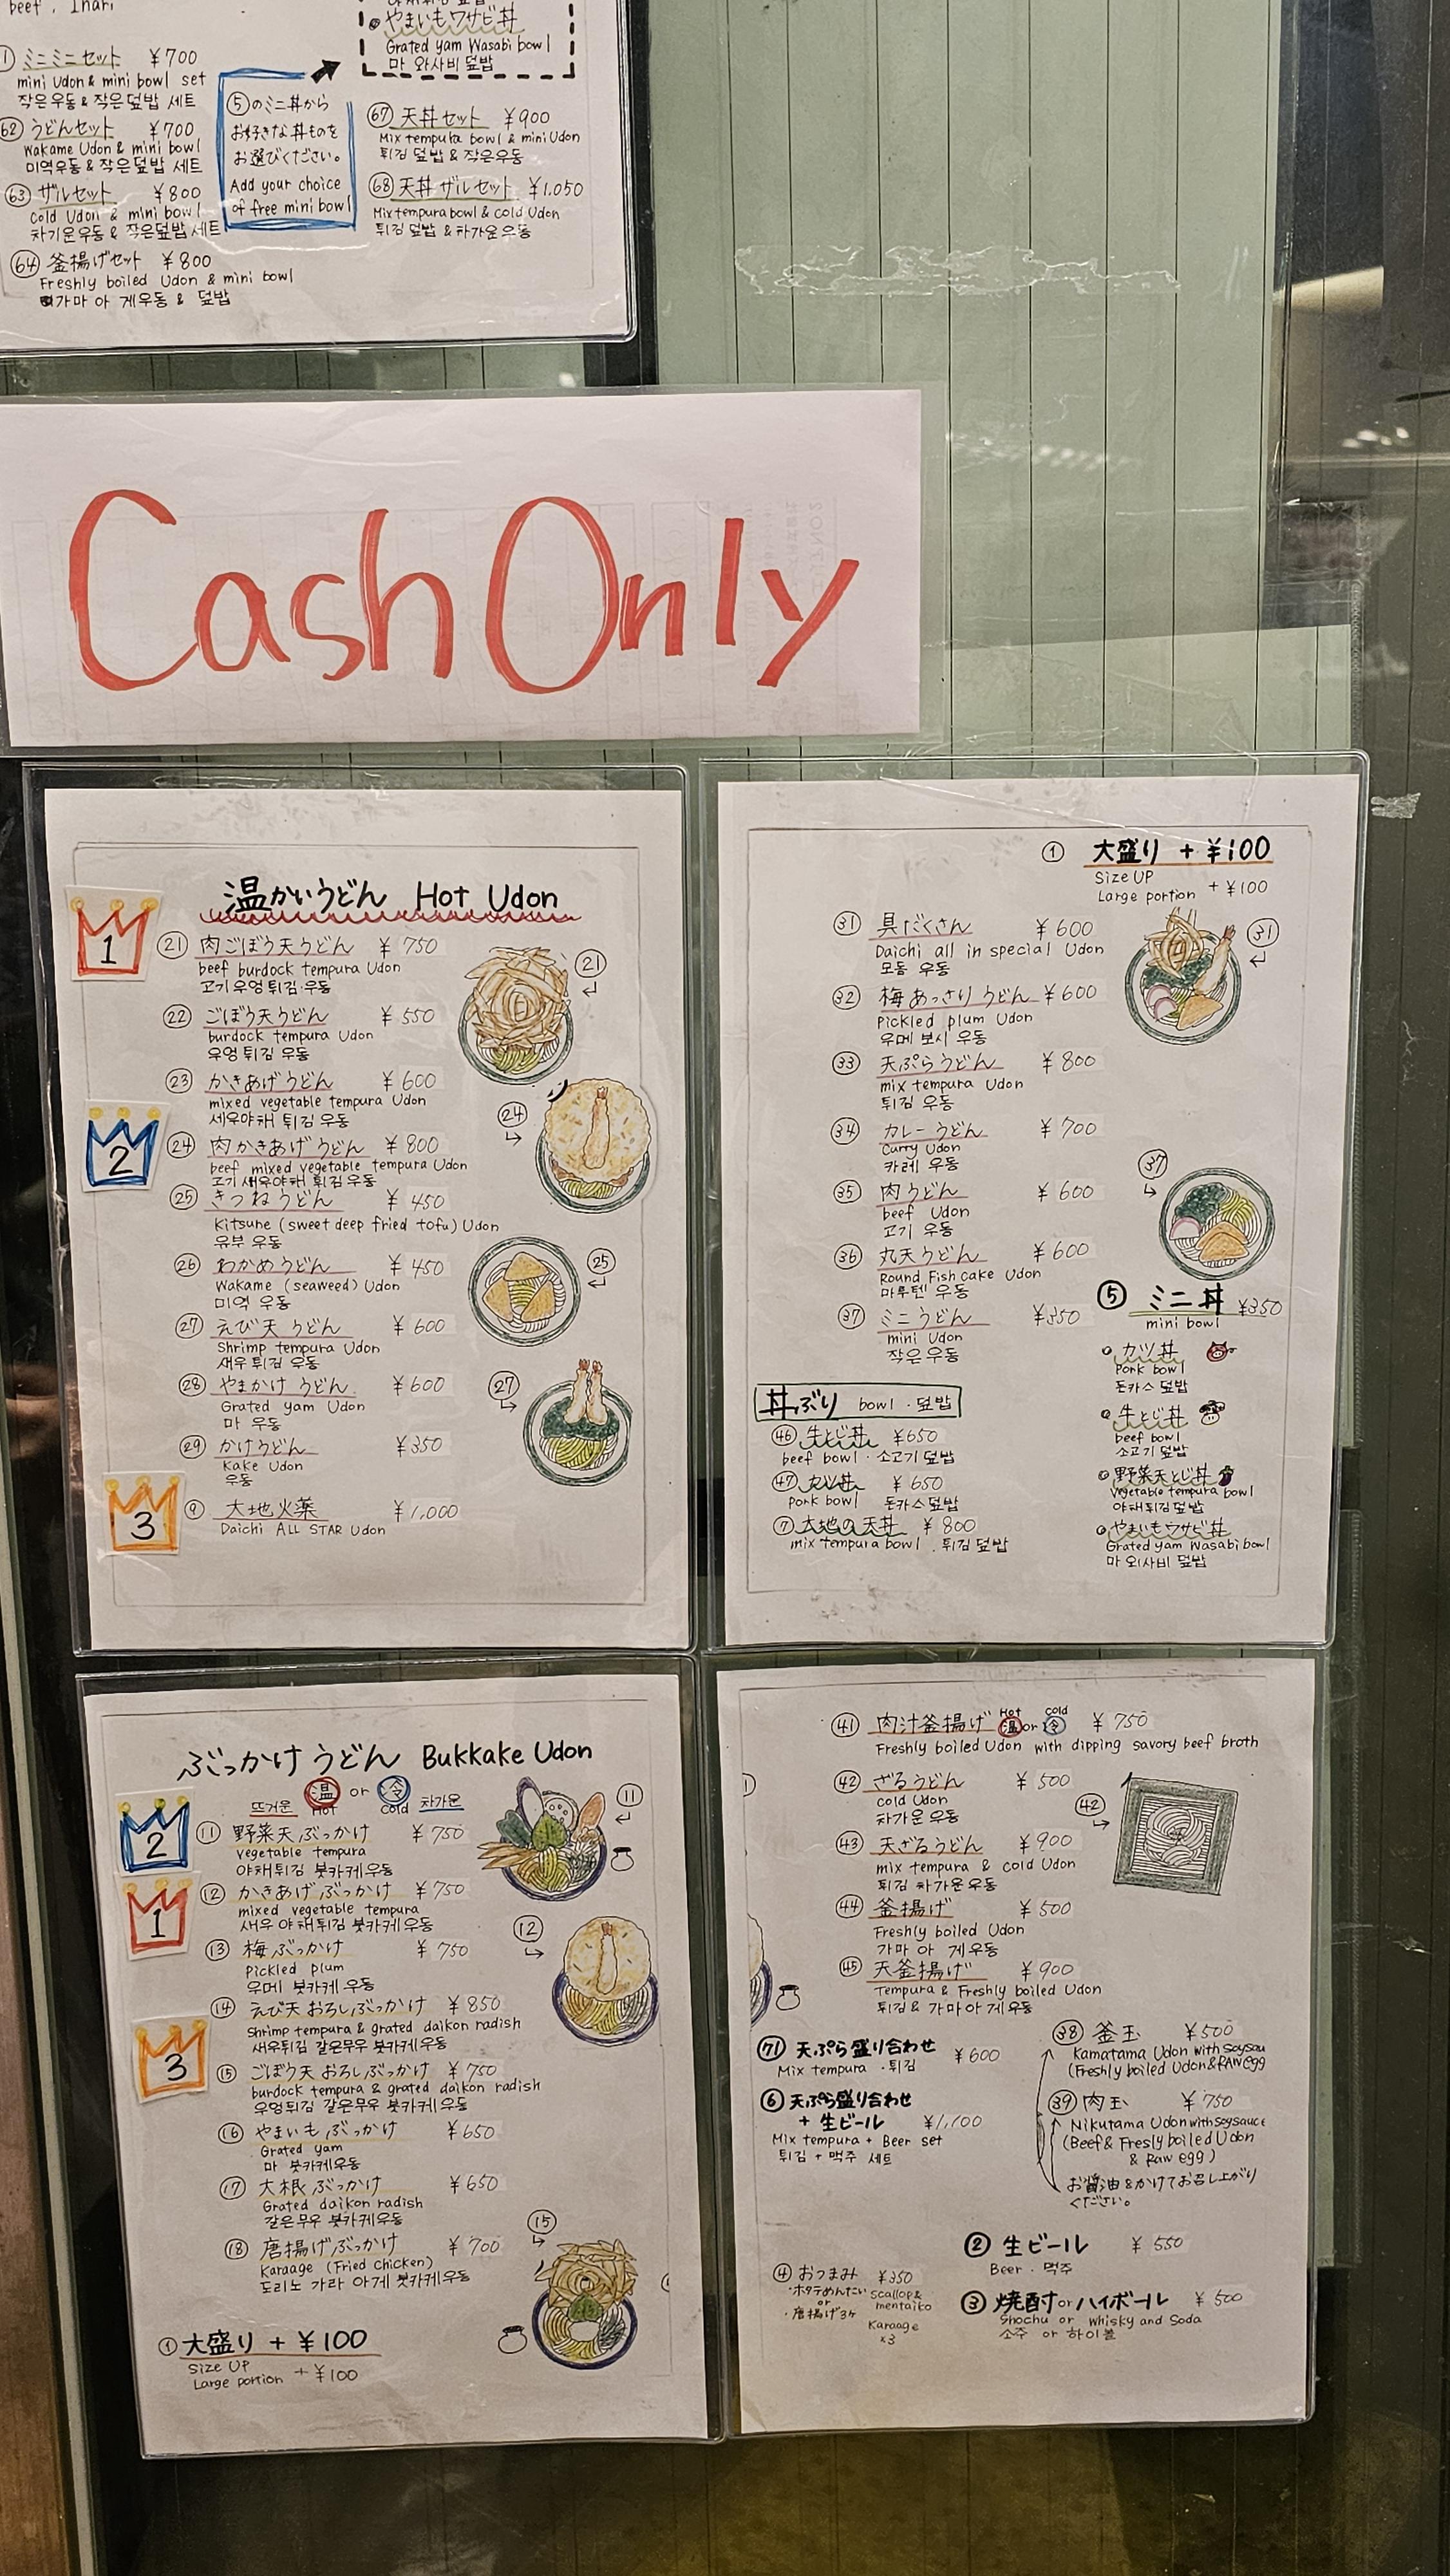 beef . Inari
① ミニミニセット ¥700
mini Udon & mini bowl set
작은우동 & 작은덮밥 세트
62 うどんセット ¥700
Wakame Udon & mini bowl
미역우동 & 작은덮밥 세트
63 ザルセット ¥800
cold Udon & mini bowl
차가운우동 & 작은덮밥 세트
64 釜揚げセット ¥800
Freshly boiled Udon & mini bowl
가마 아 게우동 & 덮밥
⑤のミニ丼から
お好きな丼ものを
お選びください。
Add your choice
of free mini bowl
やまいもワサビ丼
Grated yam Wasabi bowl
마 와사비 덮밥
67 天丼セット ¥900
Mix tempura bowl & mini Udon
튀김 덮밥 & 작은우동
68 天丼 ザルセット ¥1,050
Mix tempura bowl & cold Udon
튀김 덮밥 & 차가운우동
Cash Only
温かいうどん Hot Udon
1
㉑ 肉ごぼう天うどん ¥750
beef burdock tempura Udon
고기우엉튀김 우동
㉑
㉒ ごぼう天うどん ¥550
burdock tempura Udon
우엉 튀김 우동
㉓ かきあげうどん ¥600
mixed vegetable tempura Udon
새우야채 튀김 우동
2
㉔ 肉かきあげうどん ¥800
beef mixed vegetable tempura Udon
고기 새우야채 튀김 우동
㉔
㉕ きつねうどん ¥450
Kitsune (sweet deep fried tofu) Udon
유부 우동
㉕
㉖ わかめうどん ¥450
Wakame (seaweed) Udon
미역 우동
㉗ えび天 うどん ¥600
Shrimp tempura Udon
새우 튀김 우동
㉗
㉘ やまかけ うどん ¥600
Grated yam Udon
마 우동
㉙ かけうどん ¥350
Kake Udon
우동
3
⑨ 大地火薬 ¥1,000
Daichi ALL STAR Udon
① 大盛り + ¥100
Size UP
Large portion + ¥100
㉛ 具だくさん ¥600
Daichi all in special Udon
모둠 우동
㉛
㉜ 梅あっさりうどん ¥600
Pickled plum Udon
우메 보시 우동
㉝ 天ぷらうどん ¥800
mix tempura Udon
튀김 우동
㉞ カレーうどん ¥700
Curry Udon
카레 우동
㉟ 肉うどん ¥600
beef Udon
고기 우동
㊱ 丸天うどん ¥600
Round Fish cake Udon
마루텐 우동
㊲ ミニうどん ¥350
mini Udon
작은 우동
㊲
丼ぶり bowl · 덮밥
㊻ 牛とじ丼 ¥650
beef bowl · 소고기 덮밥
㊼ カツ丼 ¥650
pork bowl 돈카스덮밥
⑦ 大地の天丼 ¥800
mix tempura bowl . 튀김 덮밥
⑤ ミニ丼 ¥350
mini bowl
カツ丼
Pork bowl
돈카스 덮밥
牛とじ丼
beef bowl
소고기 덮밥
野菜天とじ丼
Vegetable tempura bowl
야채튀김덮밥
やまいもワサビ丼
Grated yam Wasabi bowl
마 와사비 덮밥
ぶっかけ うどん Bukkake Udon
温 or 冷
뜨거운 Hot cold 차가운
2
⑪ 野菜天ぶっかけ ¥750
vegetable tempura
야채튀김 붓카케우동
⑪
1
⑫ かきあげ ぶっかけ ¥750
mixed vegetable tempura
새우 야채튀김 붓카케우동
⑫
⑬ 梅 ぶっかけ ¥750
Pickled plum
우메 붓카케 우동
⑭ えび天 おろしぶっかけ ¥850
Shrimp tempura & grated daikon radish
새우튀김 갈은무우 붓카케우동
3
⑮ ごぼう天 おろしぶっかけ ¥750
burdock tempura & grated daikon radish
우엉튀김 갈은무우 붓카케우동
⑯ やまいも ぶっかけ ¥650
Grated yam
마 붓카케우동
⑰ 大根 ぶっかけ ¥650
Grated daikon radish
갈은무우 붓카케우동
⑮
⑱ 唐揚げぶっかけ ¥700
Karaage (Fried chicken)
도리노 가라 아게 붓카케우동
① 大盛り + ¥100
Size UP
Large portion + ¥100
㊶ 肉汁釜揚げ Hot 温 or cold 冷 ¥750
Freshly boiled Udon with dipping savory beef broth
㊷ ざるうどん ¥500
cold Udon
차가운 우동
㊷
㊸ 天ざるうどん ¥900
mix tempura & cold Udon
튀김 차가운 우동
㊹ 釜揚げ ¥500
Freshly boiled Udon
가마 아 게우동
㊺ 天釜揚げ ¥900
Tempura & Freshly boiled Udon
튀김 & 가마아 게우동
71 天ぷら盛り合わせ ¥600
Mix tempura · 튀김
⑥ 天ぷら盛り合わせ
+ 生ビール ¥1,100
Mix tempura + Beer set
튀김 + 맥주 세트
㊳ 釜玉 ¥500
Kamatama Udon with soysau
(Freshly boiled Udon & RAW egg
㊴ 肉玉 ¥750
Nikutama Udon with soysauce
(Beef & Fresly boiled Udon
& Raw egg)
お醤油をかけてお召し上がり
ください。
② 生ビール ¥550
Beer · 맥주
④ おつまみ ¥350
・ホタテめんたい Scallop & mentaiko
or
・唐揚げ3ヶ Karaage ×3
③ 焼酎 or ハイボール ¥500
Shochu or Whisky and Soda
소주 or 하이볼